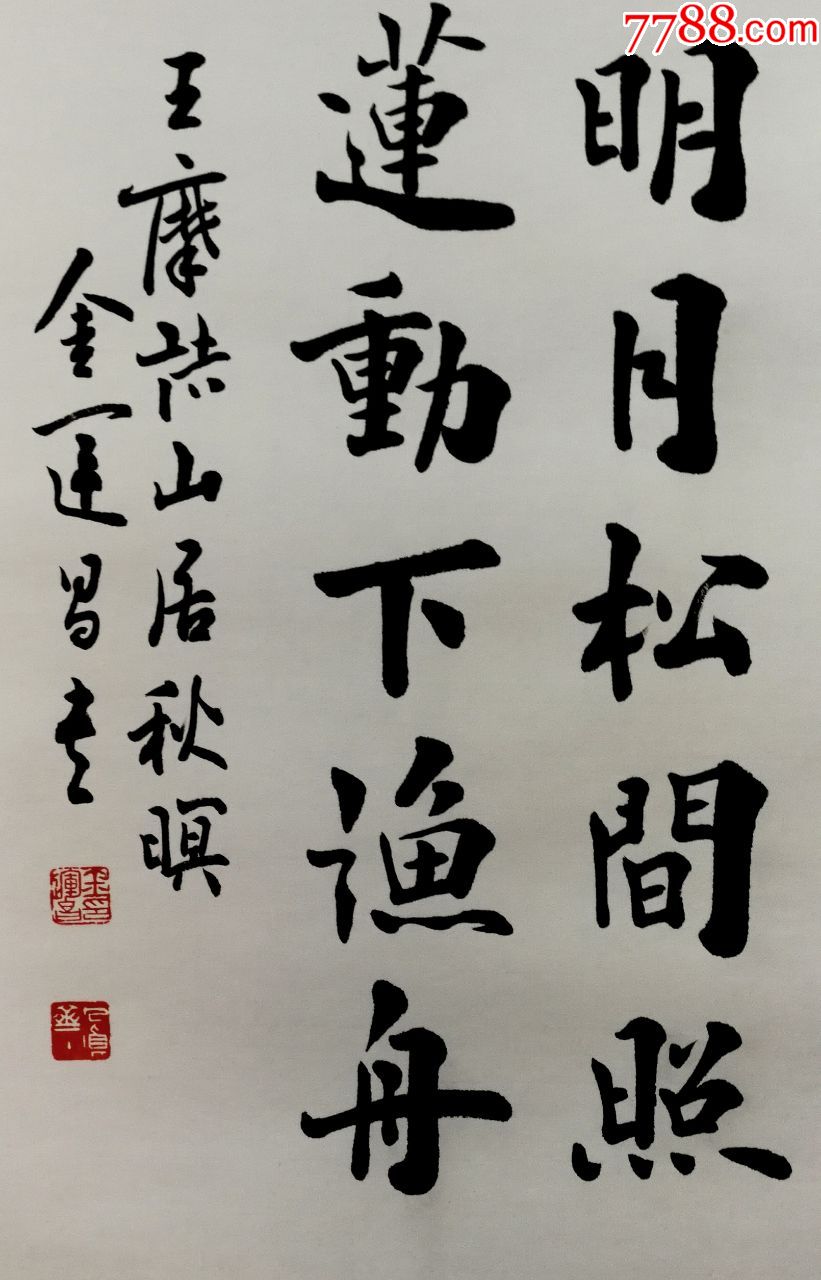 7788.com
明月松間照
蓮動下漁舟
王摩詰山居秋暝
金運昌書